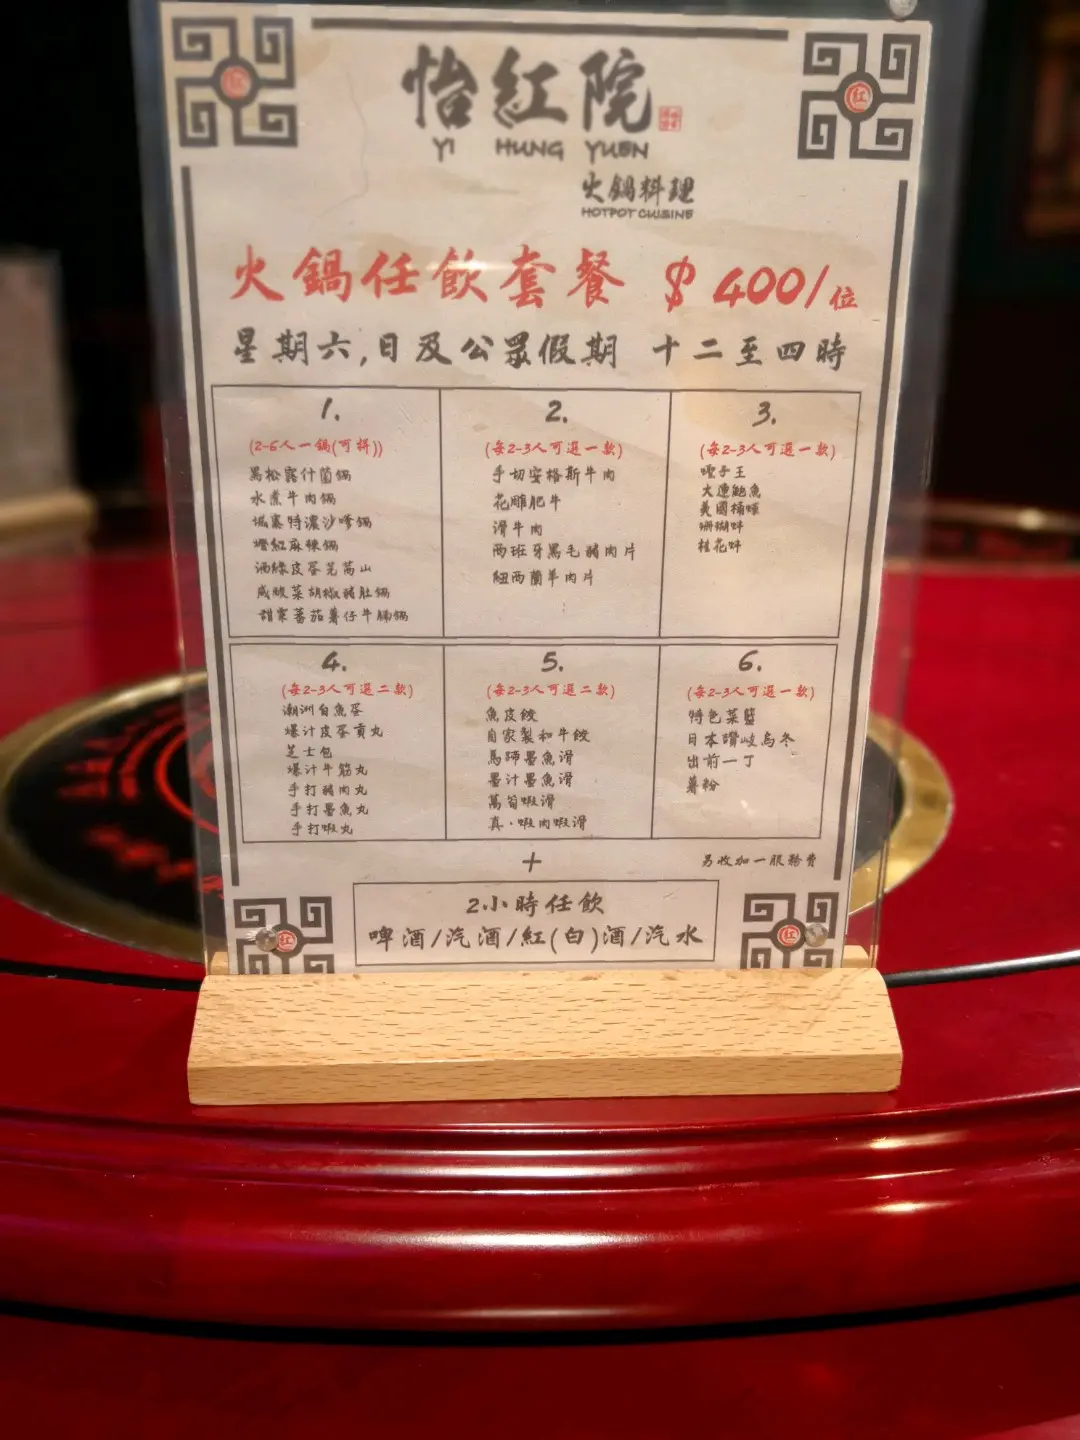 怡紅院
YI HUNG YUEN
火鍋料理
HOTPOT CUISINE
火鍋任飲套餐 $400/位
星期六,日及公眾假期 十二至四時
1.
(2-6人一鍋(可拼))
黑松露什菌鍋
水煮牛肉鍋
城寨特濃沙嗲鍋
燈紅麻辣鍋
酒綠皮蛋芫茜山
咸酸菜胡椒豬肚鍋
甜棠蕃茄薯仔牛腩鍋
2.
(每2-3人可選一款)
手切安格斯牛肉
花雕肥牛
滑牛肉
西班牙黑毛豬肉片
紐西蘭羊肉片
3.
(每2-3人可選一款)
蟶子王
大連鮑魚
美國桶蠔
珊瑚蚌
桂花蚌
4.
(每2-3人可選二款)
潮洲白魚蛋
爆汁皮蛋貢丸
芝士包
爆汁牛筋丸
手打豬肉丸
手打墨魚丸
手打蝦丸
5.
(每2-3人可選二款)
魚皮餃
自家製和牛餃
馬蹄墨魚滑
墨汁墨魚滑
萵筍蝦滑
真·蝦肉蝦滑
6.
(每2-3人可選一款)
特色菜籃
日本讚岐烏冬
出前一丁
薯粉
+
另收加一服務費
2小時任飲
啤酒/汽酒/紅(白)酒/汽水